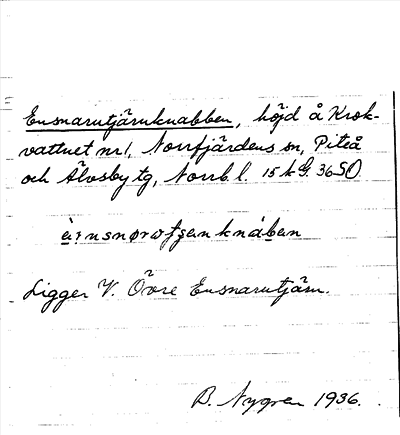 Ensnarutjärnknabben, höjd å Krok-
vattnet nr 1, Norrfjärdens sn, Piteå
och Älvsby tg, Norrb. l. 36 SO
Ligger V. Övre Ensnarutjärn.
B. Nygren 1936.